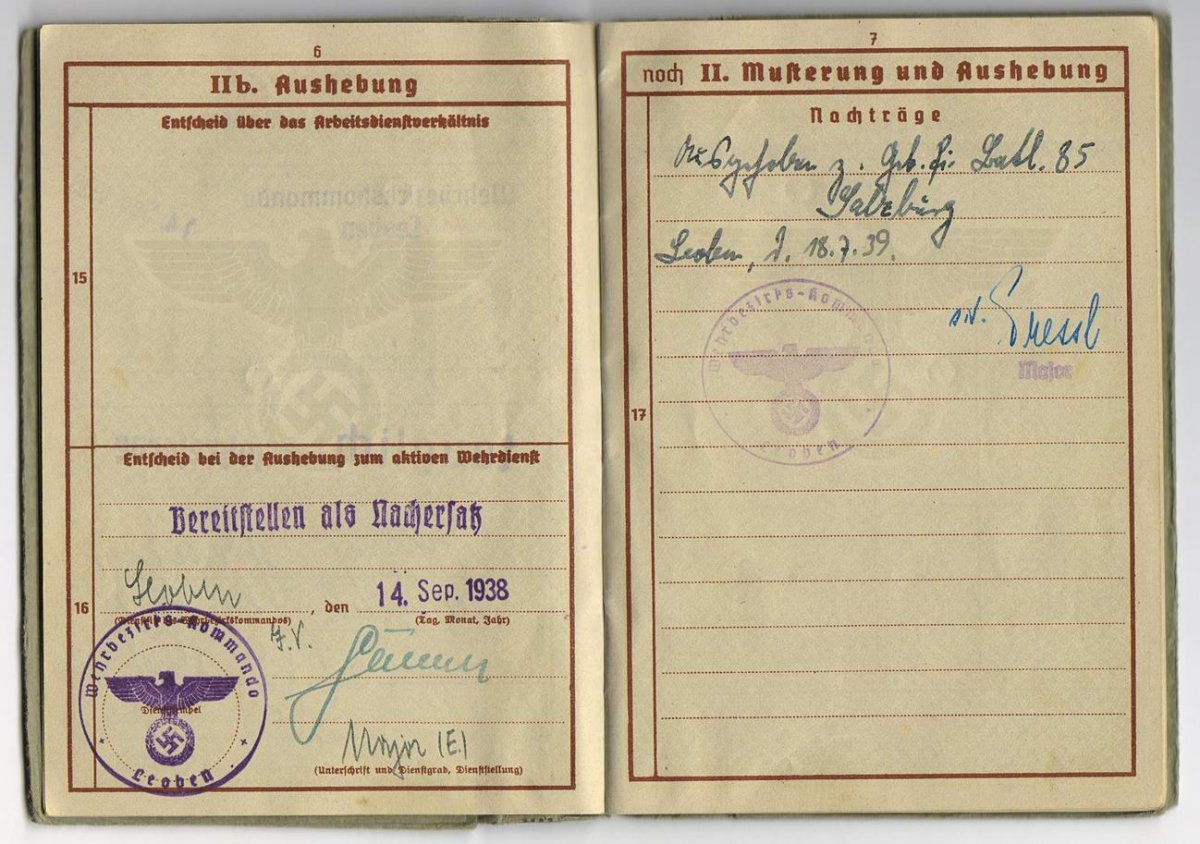 6
IIb. Aushebung
Entscheid über das Arbeitsdienstverhältnis
15
Entscheid bei der Aushebung zum aktiven Wehrdienst
Bereitstellen als Nachersatz
16
Leoben, den 14. Sep. 1938
(Tag, Monat, Jahr)
J.V.
Wehrbezirks-Kommando
Dienststempel
Leoben
Major (E.)
(Unterschrift und Dienstgrad, Dienststellung)
7
noch II. Musterung und Aushebung
Nachträge
Ausgehoben z. Geb. Pi. Batl. 85
Salzburg
Leoben, d. 18.7.39.
Wehrbezirks-Kommando
Major
17
Leoben